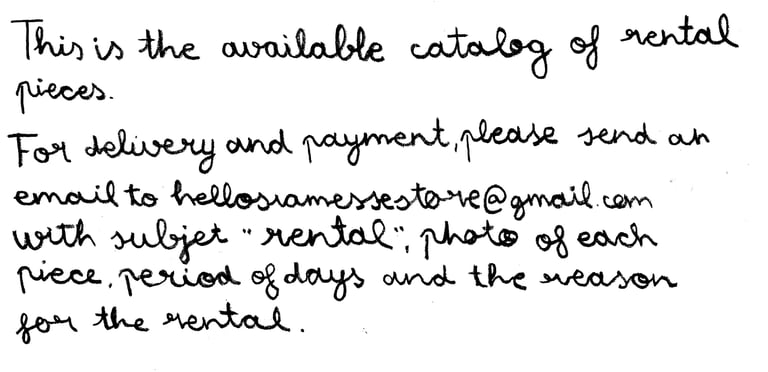 This is the available catalog of rental
pieces.
For delivery and payment, please send an
email to hellosiamessestore@gmail.com
with subjet "rental", photo of each
piece, period of days and the reason
for the rental.